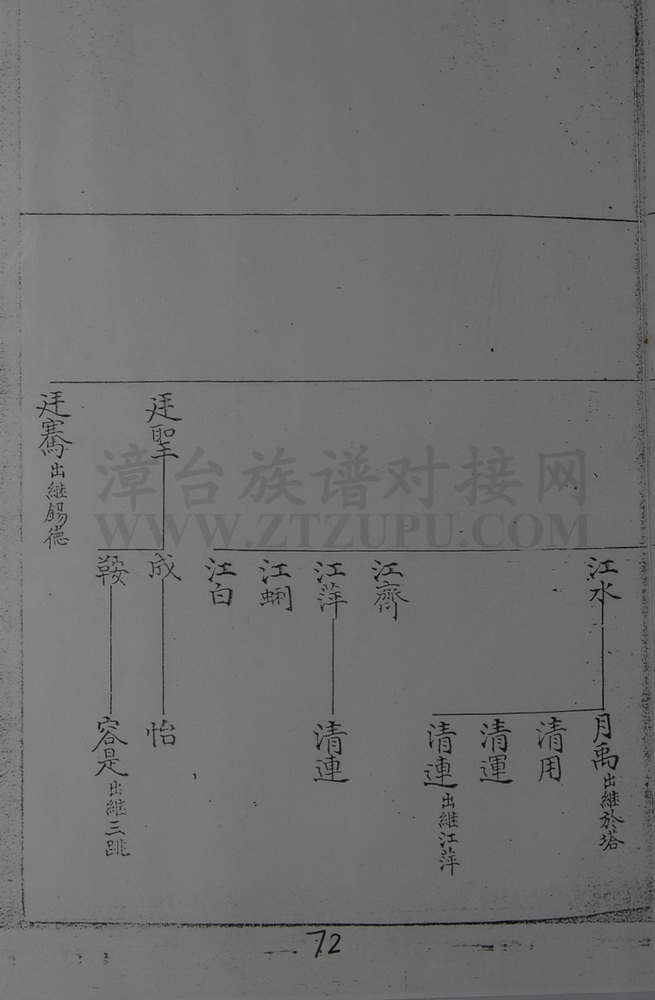 廷聖
廷騫出継錫德
江水
江齊
江萍
江蜊
江白
成
鞍
月禹出継於塔
清用
清運
清連出継江萍
清連
怡
容是出継三跳
漳台族谱对接网
WWW.ZTZUPU.COM
72